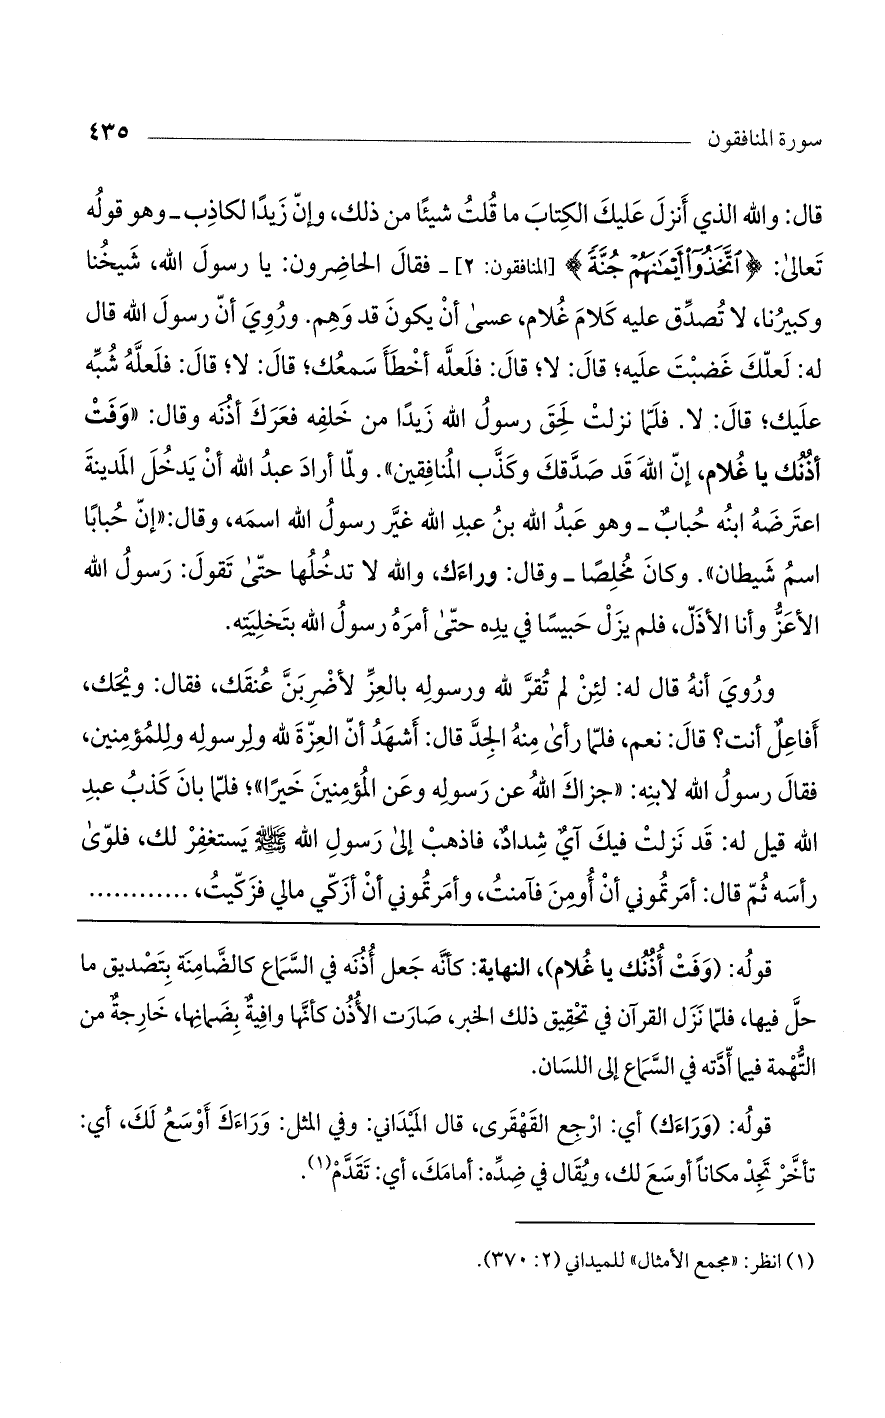 سورة المنافقون ٤٣٥
قال: والله الذي أَنزلَ عَليكَ الكِتابَ ما قُلتُ شيئًا من ذلك، وإنّ زَيدًا لكاذِب ـ وهو قولُه
تَعالىٰ: ﴿ٱتَّخَذُوٓاْ أَيْمَٰنَهُمْ جُنَّةً﴾ [المنافقون: ٢] ـ فقالَ الحاضِرون: يا رسولَ الله، شَيخُنا
وكبيرُنا، لا تُصدِّق عليه كَلامَ غُلام، عسىٰ أنْ يكونَ قد وَهِم. ورُوِيَ أنّ رسولَ الله قال
له: لَعلّكَ غَضبْتَ علَيه؛ قالَ: لا؛ قالَ: فلَعلَّه أخْطَأَ سَمعُك؛ قالَ: لا؛ قالَ: فلَعلَّهُ شُبِّه
علَيك؛ قالَ: لا. فلَمّا نزلتْ لَحِقَ رسولُ الله زَيدًا من خَلفِه فعَرَكَ أذُنَه وقال: «وَفَتْ
أذُنُك يا غُلام، إنّ اللهَ قَد صَدَّقكَ وكَذَّب المُنافقين». ولمّا أرادَ عبدُ الله أنْ يَدخُلَ المَدينةَ
اعترَضَهُ ابنُه حُبابٌ ـ وهو عَبدُ الله بنُ عبدِ الله غيَّر رسولُ الله اسمَه، وقال:«إنّ حُبابًا
اسمُ شَيطان». وكانَ مُخلِصًا ـ وقال: وراءَك، والله لا تدخُلُها حتّىٰ تَقولَ: رَسولُ الله
الأعَزُّ وأنا الأذَلّ، فلم يزَلْ حَبيسًا في يدِه حتّىٰ أمرَهُ رسولُ الله بتَخلِيَتِه.
ورُويَ أنهُ قال له: لئِنْ لم تُقرَّ لله ورسولِه بالعِزِّ لأضْرِبَنَّ عُنقَك، فقال: ويْحَك،
أَفاعِلٌ أنت؟ قالَ: نعم، فلمّا رأىٰ مِنهُ الجِدَّ قال: أَشهَدُ أنّ العِزّةَ لله ولِرسولِه ولِلمُؤمِنين،
فقالَ رسولُ الله لابنِه: «جزاكَ اللهُ عن رَسولِه وعَن المُؤمِنينَ خَيرًا»؛ فلمّا بانَ كَذبُ عبدِ
الله قيل له: قَد نَزلتْ فيكَ آيٌ شِدادٌ، فاذهبْ إلىٰ رَسولِ الله ﷺ يَستغفِرْ لك، فلَوّىٰ
رأسَه ثُمّ قال: أمَرتمُوني أنْ أُومِنَ فآمنتُ، وأمَرتمُوني أنْ أزَكّي مالي فزَكّيتُ، ............
قولُه: (وَفَتْ أُذُنُك يا غُلام)، النهاية: كأنَّه جَعل أُذُنَه في السَّمَاع كالضَّامِنَة بِتَصْديق ما
حلَّ فيها، فلمّا نَزَل القرآن في تحْقِيق ذلك الخبر، صَارَت الأُذُن كأنَّها وافِيةٌ بِضَمانِها، خَارِجةٌ من
التُّهْمة فيما أدَّته في السَّمَاع إلى اللسَان.
قولُه: (وَرَاءَك) أي: ارْجِع القَهْقَرى، قال المَيْدَاني: وفي المثل: وَرَاءَكَ أَوْسَعُ لَكَ، أي:
تأخَّرْ تَجِدْ مكاناً أوسَعَ لك، ويُقَال في ضِدِّه: أمامَكَ، أي: تَقَدَّمْ(١).
(١) انظر: «مجمع الأمثال» للميداني (٢: ٣٧٠).